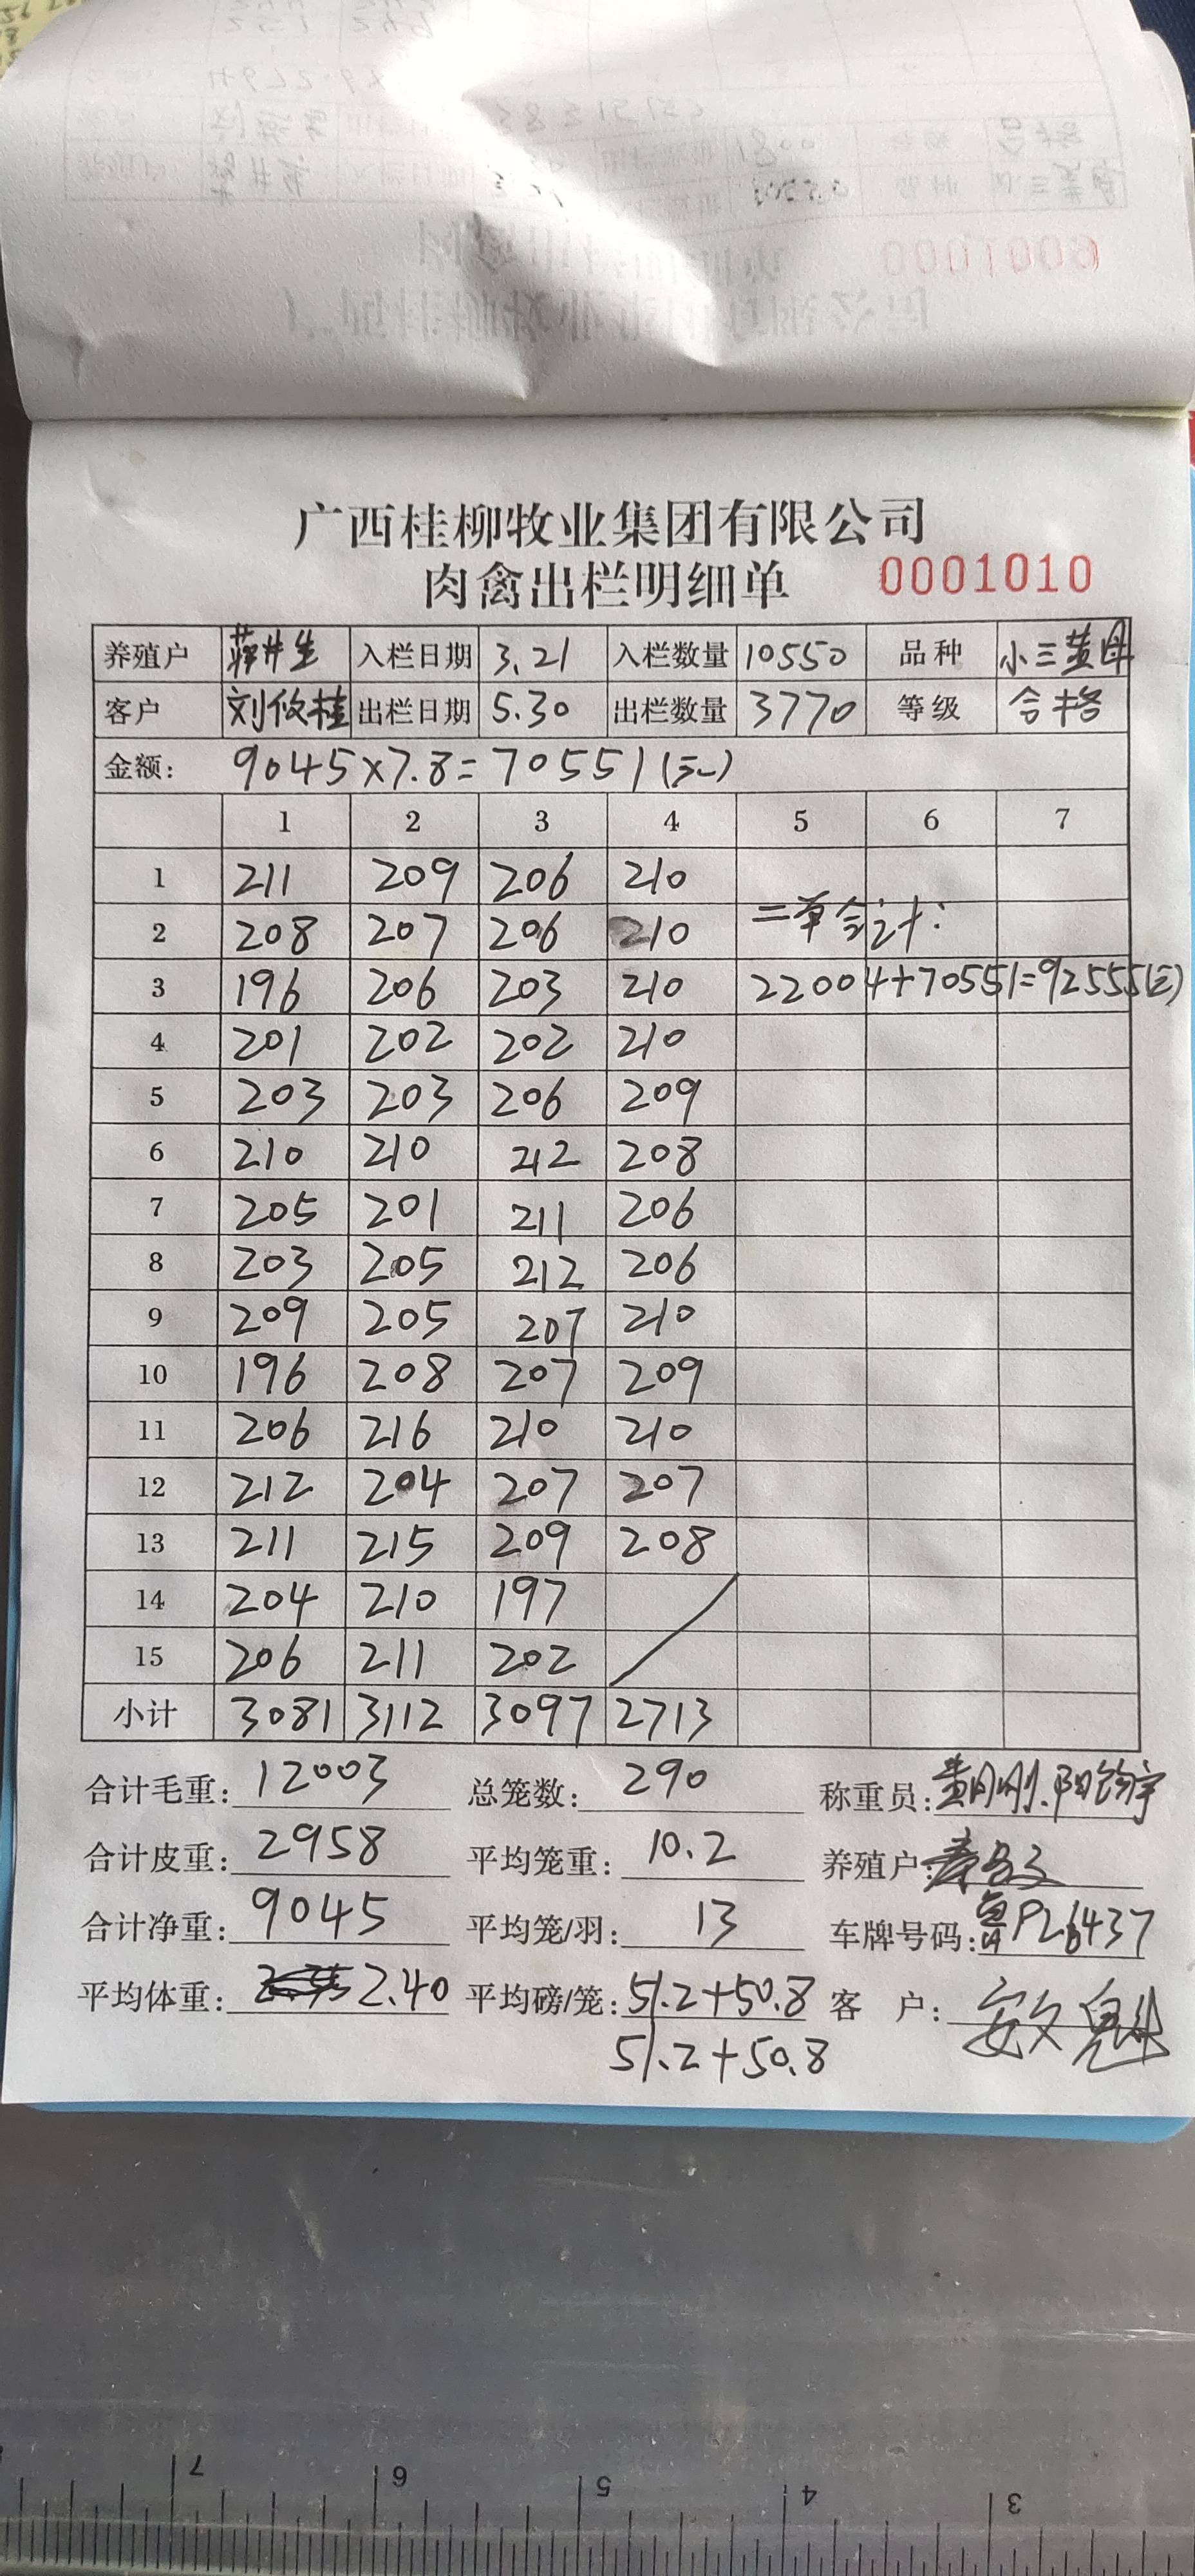 广西桂柳牧业集团有限公司
肉禽出栏明细单 0001010
养殖户 蒋井生 入栏日期 3.21 入栏数量 10550 品种 小三黄母
客户 刘攸桂 出栏日期 5.30 出栏数量 3770 等级 合格
金额: 9045×7.8=70551(元)
1 2 3 4 5 6 7
1 211 209 206 210
2 208 207 206 210 二单合计:
3 196 206 203 210 22004+70551=92555(元)
4 201 202 202 210
5 203 203 206 209
6 210 210 212 208
7 205 201 211 206
8 203 205 212 206
9 209 205 207 210
10 196 208 207 209
11 206 216 210 210
12 212 204 207 207
13 211 215 209 208
14 204 210 197
15 206 211 202
小计 3081 3112 3097 2713
合计毛重: 12003 总笼数: 290 称重员:
合计皮重: 2958 平均笼重: 10.2 养殖户:
合计净重: 9045 平均笼/羽: 13 车牌号码:
平均体重: 2.40 平均磅/笼: 51.2+50.8 客 户:
51.2+50.8
7 6 5 4 3